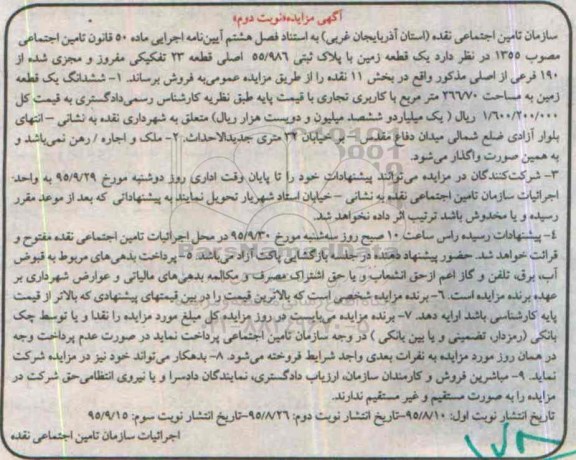 آگهی مزایده«نوبت دوم»
سازمان تامین اجتماعی نقده (استان آذربایجان غربی) به استناد فصل هشتم آیین‌نامه اجرایی ماده ۵۰ قانون تامین اجتماعی
مصوب ۱۳۵۵ در نظر دارد یک قطعه زمین با پلاک ثبتی ۵۵/۹۸۶ اصلی قطعه ۲۳ تفکیکی مفروز و مجزی شده از
۱۹۰ فرعی از اصلی مذکور واقع در بخش ۱۱ نقده را از طریق مزایده عمومی‌به فروش برساند. ۱- ششدانگ یک قطعه
زمین به مساحت ۲۶۶۷۸۰ متر مربع با کاربری تجاری با قیمت پایه طبق نظریه کارشناس رسمی‌دادگستری به قیمت کل
۱/۶۰۰/۲۰۰/۰۰۰ ریال ( یک میلیاردو ششصد میلیون و دویست هزار ریال) متعلق به شهرداری نقده به نشانی – انتهای
بلوار آزادی ضلع شمالی میدان دفاع مقدس - بر خیابان ۲۴ متری جدیدالاحداث. ۲- ملک و اجاره / رهن نمی‌باشد و
به همین صورت واگذار می‌شود.
۳- شرکت‌کنندگان در مزایده می‌توانند پیشنهادات خود را تا پایان وقت اداری روز دوشنبه مورخ ۹۵/۹/۲۹ به واحد
اجرائیات سازمان تامین اجتماعی نقده به نشانی – خیابان استاد شهریار تحویل نمایند به پیشنهاداتی که بعد از موعد مقرر
رسیده و یا مخدوش باشد ترتیب اثر داده نخواهد شد.
٤- پیشنهادات رسیده راس ساعت ۱۰ صبح روز سه‌شنبه مورخ ۹۵/۹/۳۰ در محل اجرائیات تامین اجتماعی نقده مفتوح و
قرائت خواهد شد. حضور پیشنهاد دهنده در جلسه بازگشایی پاکت آزاد می‌باشد. ۵- پرداخت بدهی‌های مربوط به قبوض
آب، برق، تلفن و گاز اعم ازحق انشعاب و یا حق اشتراک مصرف و مکالمه بدهی‌های مالیاتی و عوارض شهرداری بر
عهده برنده مزایده است. ۶- برنده مزایده شخصی است که بالاترین قیمت را در بین قیمتهای پیشنهادی که بالاتر از قیمت
پایه کارشناسی باشد ارایه دهد. ۷- برنده مزایده می‌بایست در روز مزایده کل مبلغ مورد مزایده را نقدا و یا توسط چک
بانکی (رمزدار، تضمینی و یا بین بانکی ) در وجه سازمان تامین اجتماعی پرداخت نماید در صورت عدم پرداخت وجه
در همان روز مورد مزایده به نفرات بعدی واجد شرایط فروخته می‌شود. ۸- بدهکار می‌تواند خود نیز در مزایده شرکت
نماید. ۹- مباشرین فروش و کارمندان سازمان، ارزیاب دادگستری، نمایندگان دادسرا و یا نیروی انتظامی‌حق شرکت در
مزایده را به صورت مستقیم و غیر مستقیم ندارند.
تاریخ انتشار نوبت اول: ۹۵/۸/۱۰-تاریخ انتشار نوبت دوم: ۹۵/۸/۲۶-تاریخ انتشار نوبت سوم: ۹۵/۹/۱۵
اجرائیات سازمان تامین اجتماعی نقده